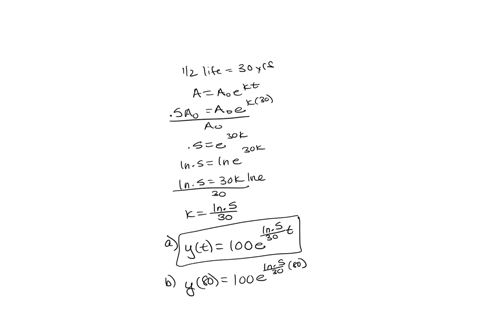 1/2 life = 30 yrs
A = A₀e^kt
.5A₀ = A₀e^k(30)
A₀
.5 = e^30k
ln .5 = ln e^30k
ln .5 = 30k ln e
30
k = ln .5/30
a) y(t) = 100e^(ln .5/30)t
b) y(80) = 100e^(ln .5/30)(80)